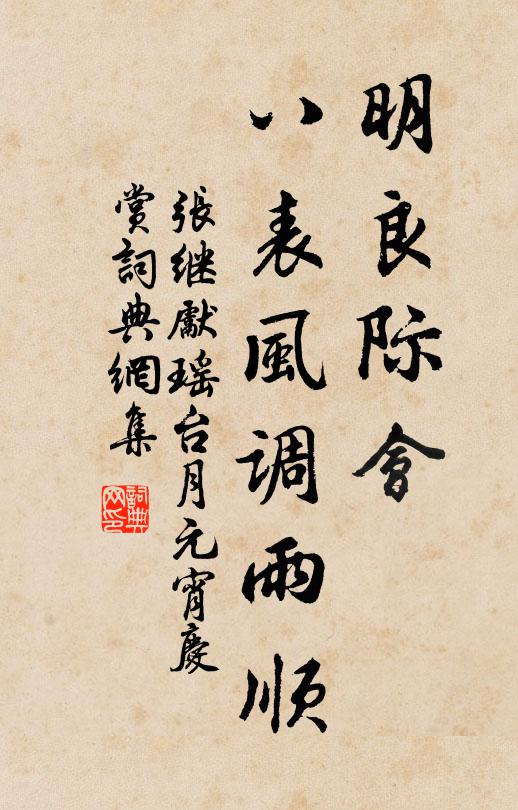 明良际會
八表風調雨順
張继獻瑶台月元宵慶
賞詞典網集
詞典
网印